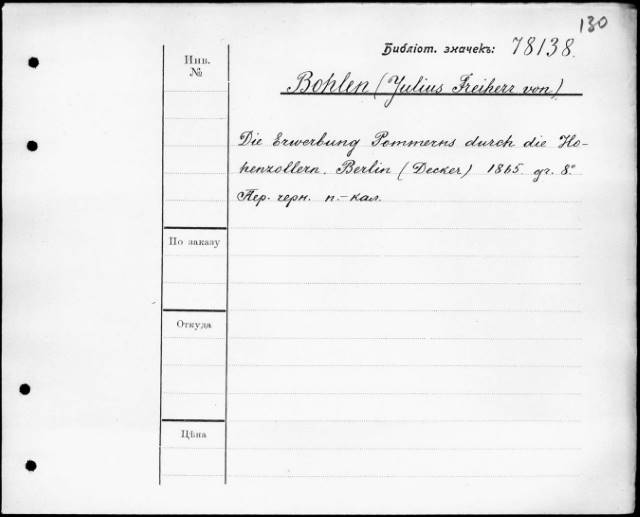 130
Библіот. значекъ: 78138.
Инв.
№
Bohlen (Julius Freiherr von)
Die Erwerbung Pommerns durch die Ho-
henzollern. Berlin (Decker) 1865. gr. 8°
Пер. черн. п.-кал.
По заказу
Откуда
Цѣна